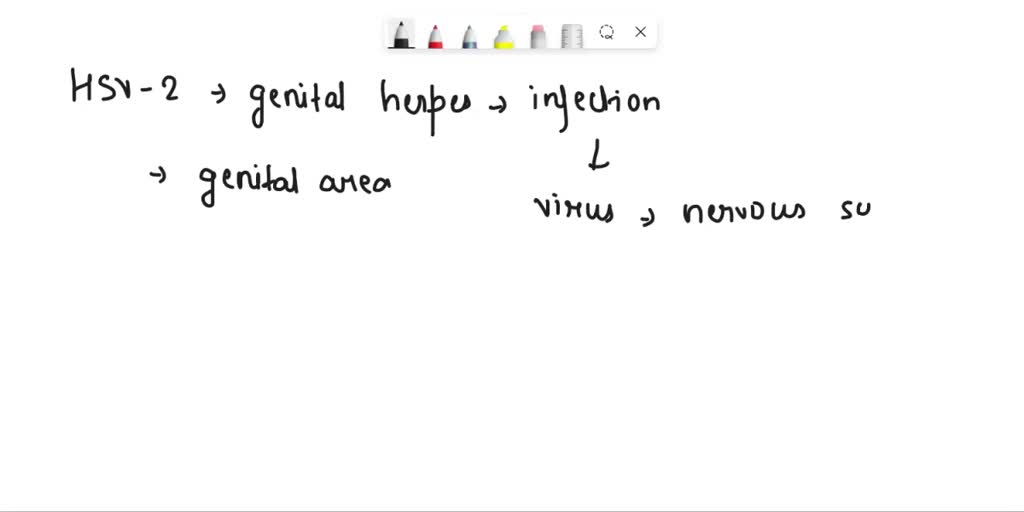 HSV-2 → genital herpes → infection
↓
→ genital area
virus → nervous